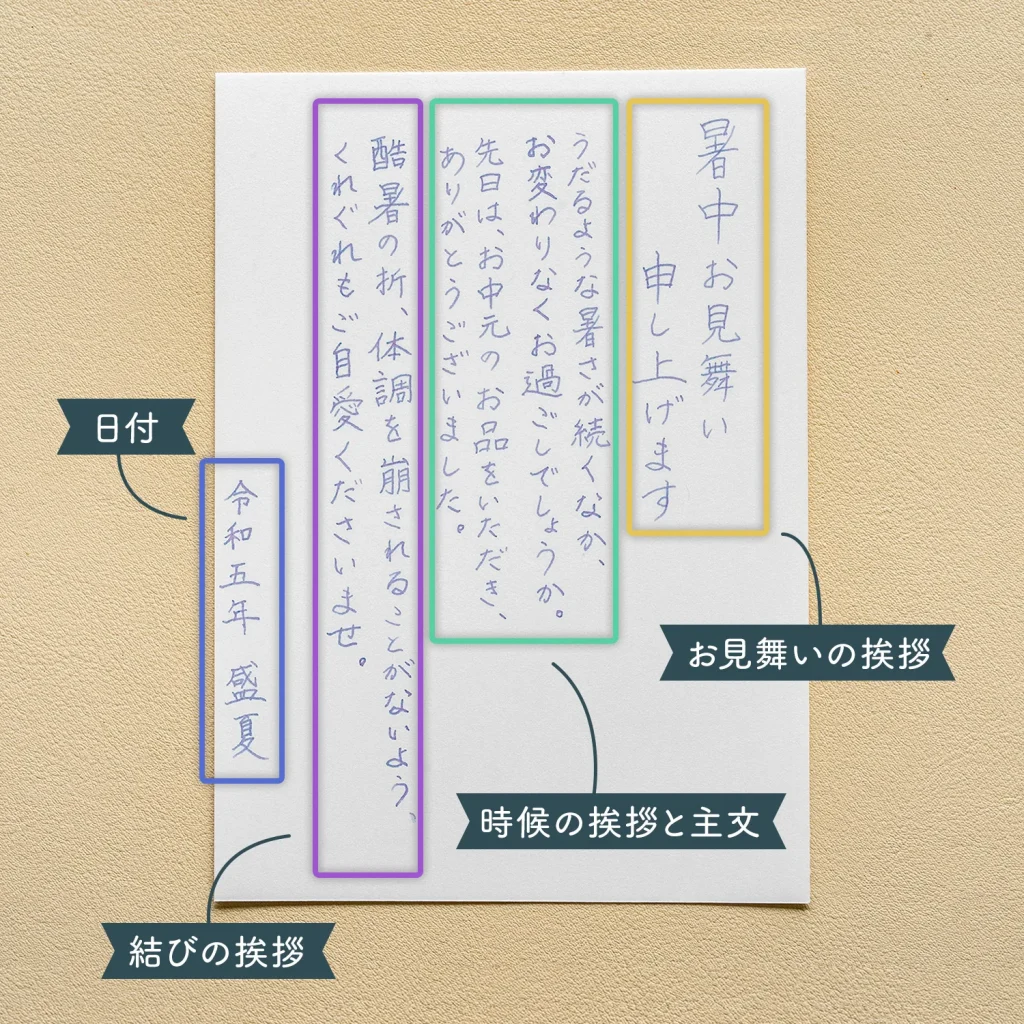 暑中お見舞い
申し上げます
うだるような暑さが続くなか、
お変わりなくお過ごしでしょうか。
先日は、お中元のお品をいただき、
ありがとうございました。
酷暑の折、体調を崩されることがないよう、
くれぐれもご自愛くださいませ。
令和五年 盛夏
お見舞いの挨拶
時候の挨拶と主文
結びの挨拶
日付